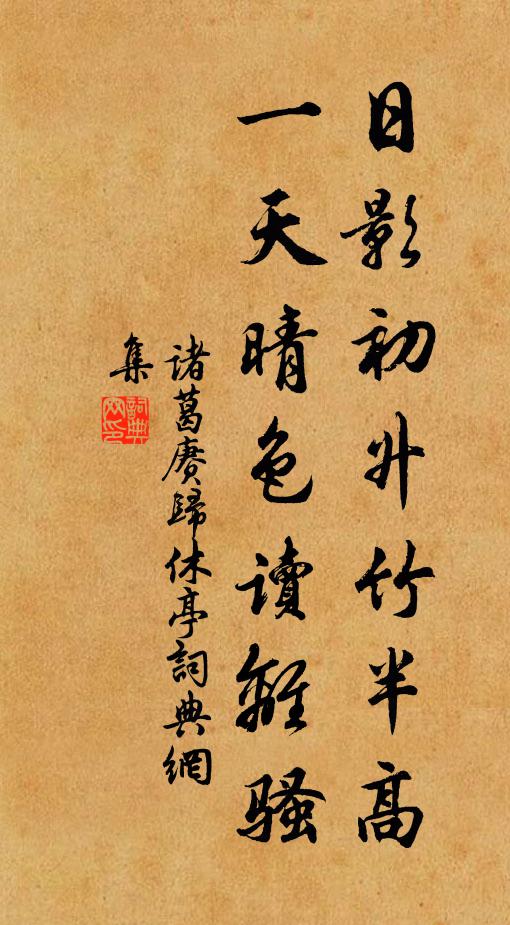 日影初升竹半高
一天晴色讀離騷
諸葛赓歸休亭詞典網
集
詞典
网印